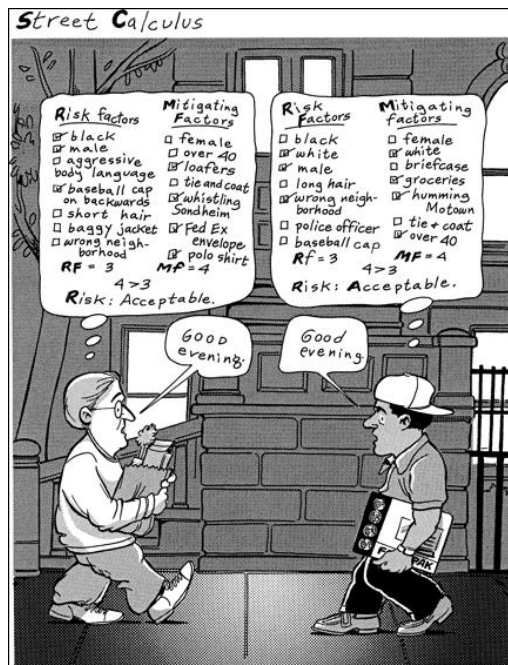 Street Calculus
Risk factors
black
male
aggressive
body language
baseball cap
on backwards
short hair
baggy jacket
wrong neigh-
borhood
RF = 3
Mitigating
Factors
female
over 40
loafers
tie and coat
whistling
Sondheim
Fed Ex
envelope
polo shirt
Mf = 4
4 > 3
Risk: Acceptable.
Risk
Factors
black
white
male
long hair
wrong neigh-
borhood
police officer
baseball cap
Rf = 3
Mitigating
factors
female
white
briefcase
groceries
humming
Motown
tie + coat
over 40
MF = 4
4 > 3
Risk: Acceptable.
GOOD
evening.
Good
evening.
PAK